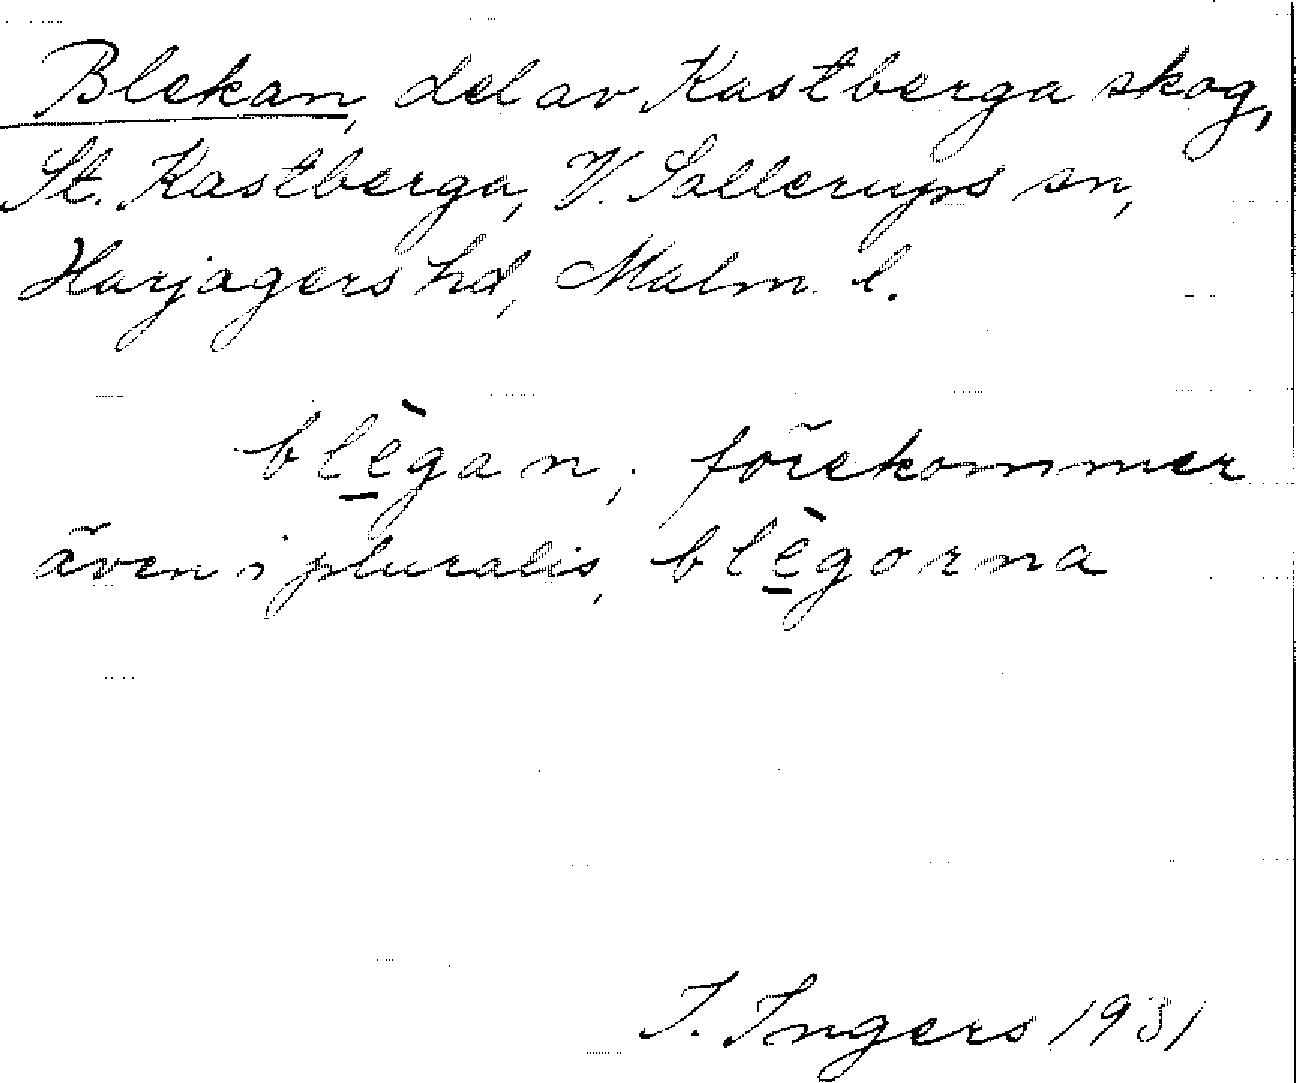 Blekan, del av Kastberga skog,
St. Kastberga, V. Sallerups sn,
Harjagers hd, Malm. l.
blè̱gan; förekommer
även i pluralis, blè̱gorna
I. Ingers 1931